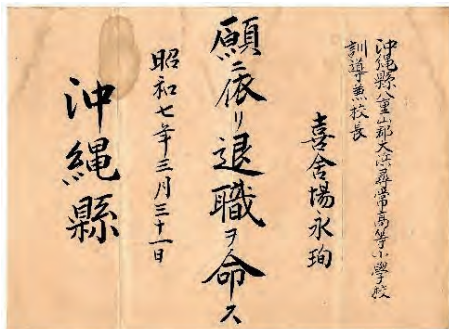 沖縄縣八重山郡大濱尋常高等小學校
訓導兼校長
喜舍場永珣
願ニ依リ退職ヲ命ス
昭和七年三月三十一日
沖縄縣